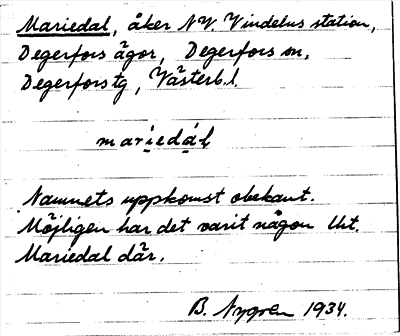 Mariedal, åker NV. Vindelns station,
Degerfors ägor, Degerfors sn,
Degerfors tg, Västerb.l.
mariedál
Namnets uppkomst obekant.
Möjligen har det varit någon lht.
Mariedal där.
B. Nygren 1934.